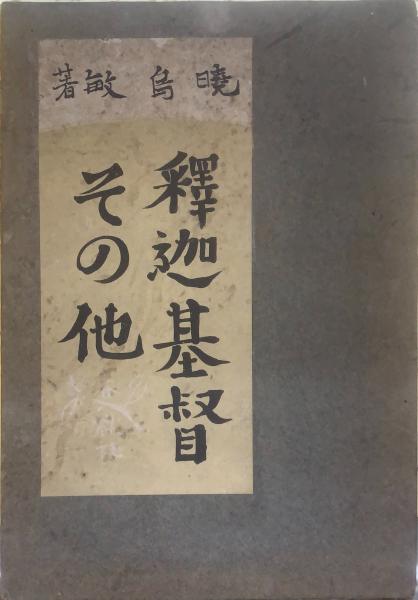 曉烏敏著
釋迦基督
その他